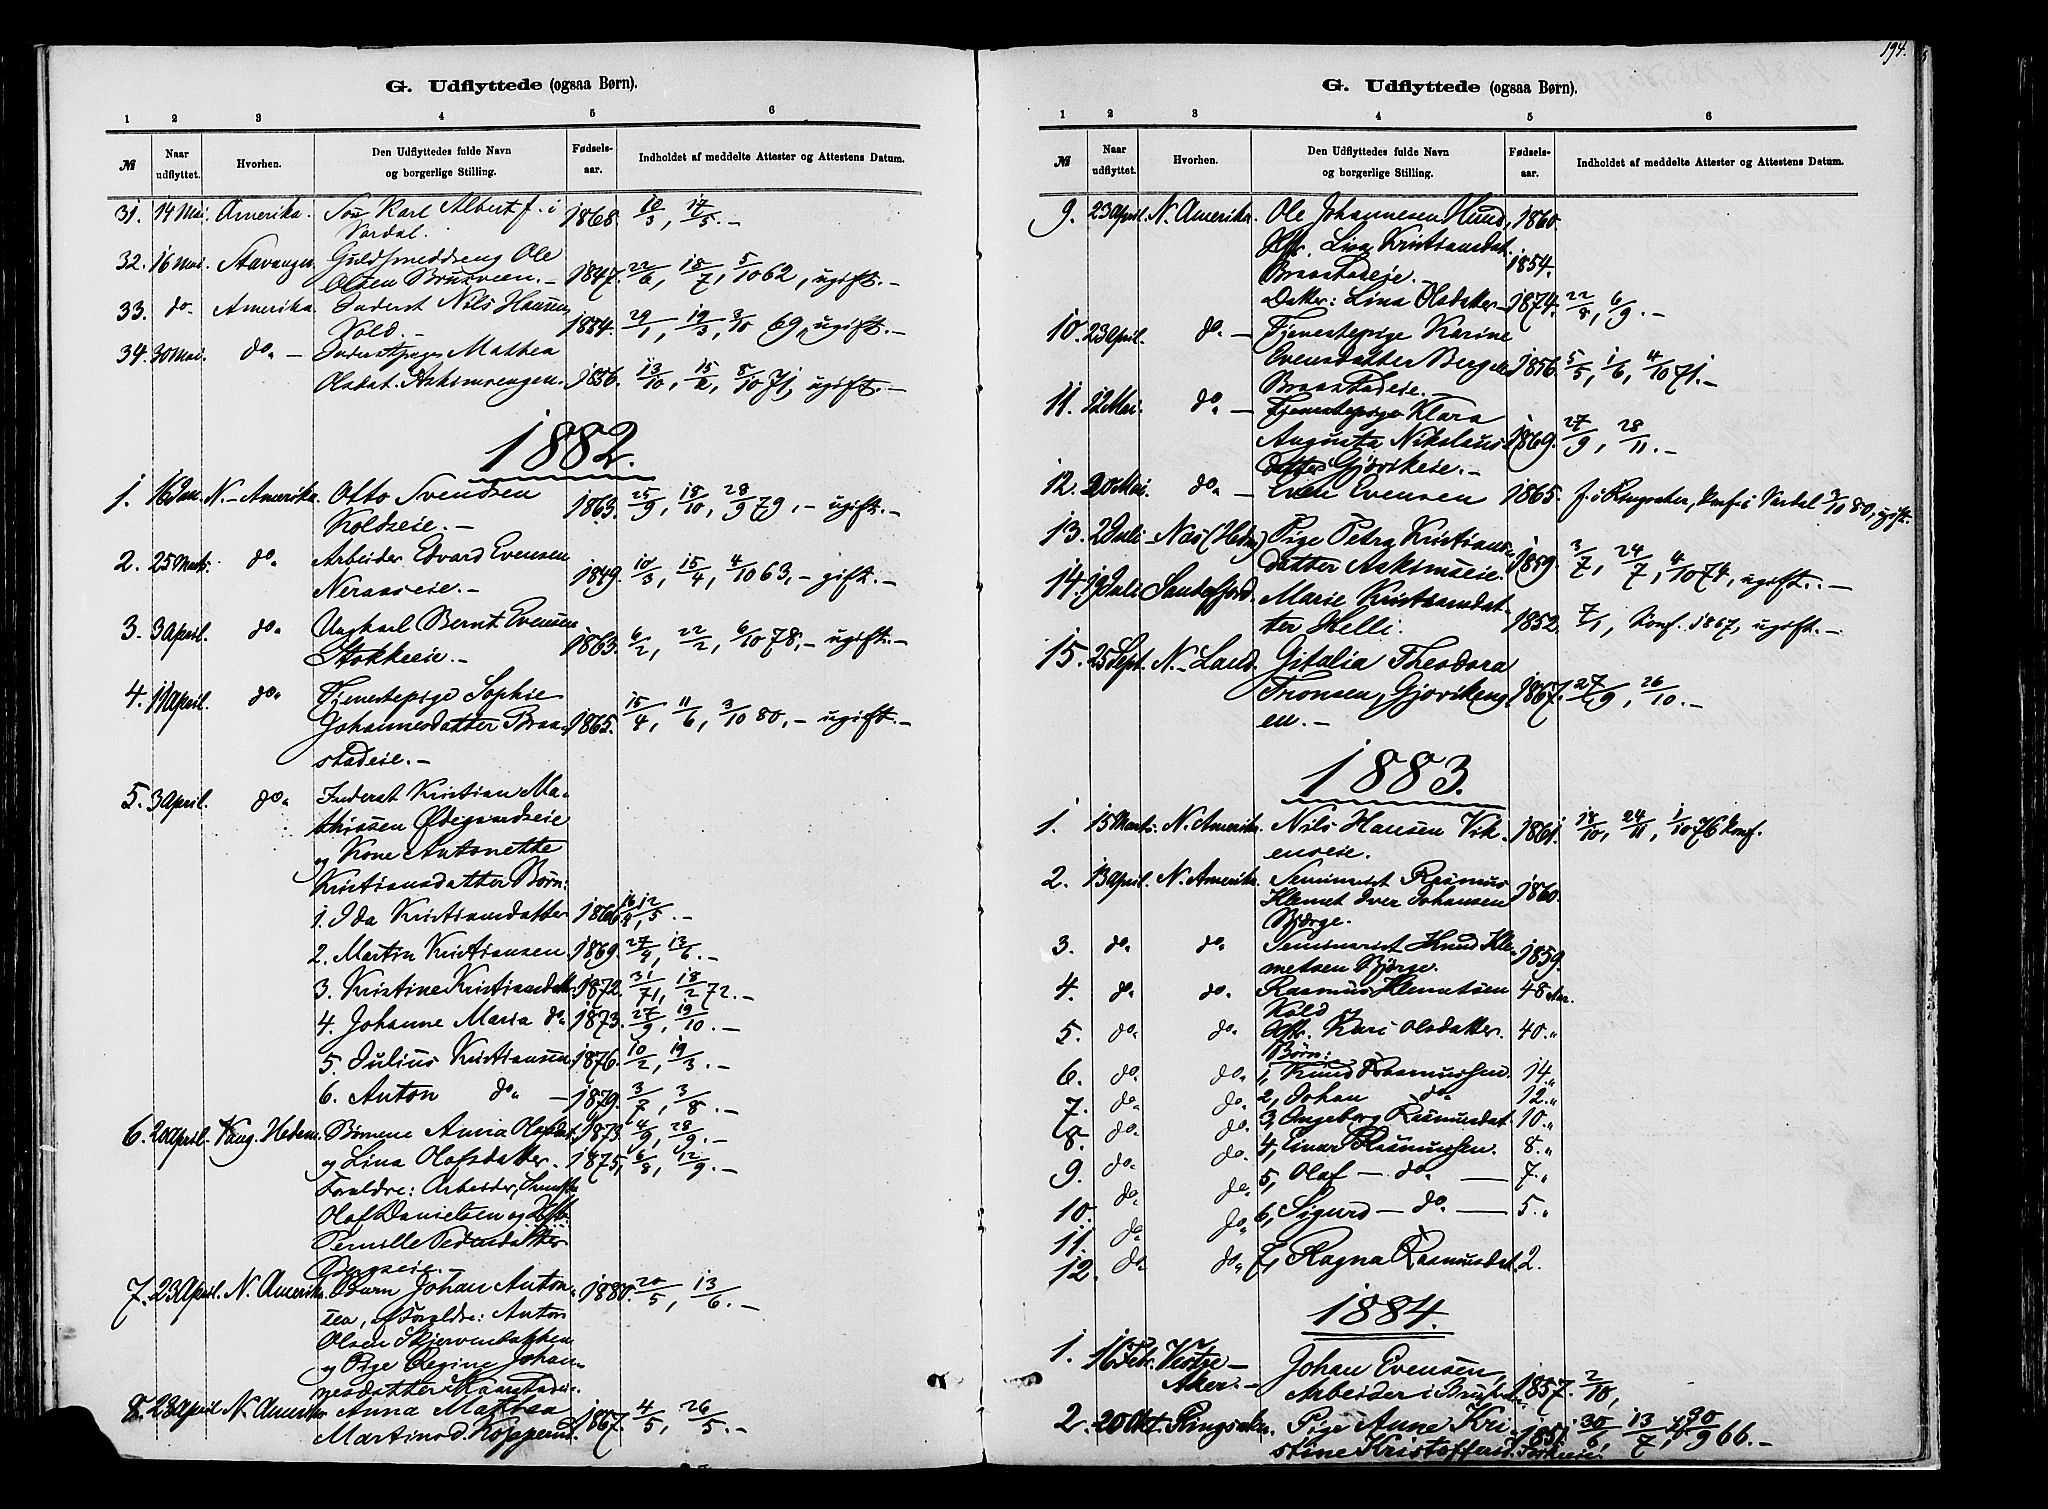 194.
G. Udflyttede (ogsaa Børn).
1 2 3 4 5 6
№ Naar udflyttet. Hvorhen. Den Udflyttedes fulde Navn og borgerlige Stilling. Fødsels-aar. Indholdet af meddelte Attester og Attestens Datum.
31. 14 Mai. Amerika. Søn Karl Albert f. i 1868. 10/3, 17/5. —
Vardal.
32. 16 Mai. Stavanger. Guldsmeddreng Ole
Olsen Brusveen. — 1847. 22/6, 18/7, 5/10 62, ugift. —
33. do Amerika. Inderst Nils Hansen
Vold. — 29/1, 19/3, 3/10 69, ugift. —
34. 30 Mai. do. — Mathea
Olsdat. Askimsengen. 1856. 13/10, 15/2, 8/10 71, ugift. —
1882.
1. 16 Jan. N. Amerika. Otto Svendsen
Koldseie. — 1863. 25/9, 18/10, 28/9 79, — ugift. —
2. 25 Marts. do. Arbeider Edvard Evensen
— 1849. 10/3, 15/4, 4/10 63, — gift. —
3. 3 April. do. Ungkarl Bernt Evensen
Stokkeeie. — 1863. 6/2, 22/2, 6/10 78, — ugift. —
4. 11 April. do. Tjenestepige Sophie
Johannesdatter Braa- 1865. 15/4, 11/6, 3/10 80, — ugift. —
stadeie. —
5. 3 April. do. Inderst Kristian Ma-
thissen Ødegaardseie
og Kone Antonette
Kristiansdatter Børn:
1. Ida Kristiansdatter 1866
2. Martin Kristiansen 1869. 27/4, 13/6. —
3. Kristine Kristiansdatt. 1872. 31/71, 18/2 72. —
4. Johanne Maria do. 1873. 27/9, 19/10. —
5. Julius Kristiansen 1876. 10/2, 19/3. —
6. Anton do. — 1879. 3/7, 3/8. —
6. 20 April. Vang. Hedem. Børnene Anna Olafsdat. 1873. 4/9, 28/9. —
og Lina Olafsdatter. 1875. 6/8, 12/9. —
Forældre: Arbeider,
Olaf Danielsen og Hstr.
Pernille
Bergseie. —
7. 23 April. N. Amerika. Barn Johan Anton- 1880. 20/5, 13/6. —
sen, Forældre: Anton
Olsen Skjervenbakken
og Pige Regine Johan-
nesdatter
8. 23 April N. Amerik. Anna Mathea
Martinsd. Kopperud. 1867. 4/5, 26/5. —
G. Udflyttede (ogsaa Børn).
1 2 3 4 5 6
№ Naar udflyttet. Hvorhen. Den Udflyttedes fulde Navn og borgerlige Stilling. Fødsels-aar. Indholdet af meddelte Attester og Attestens Datum.
9. 23 April. N. Amerika. Ole Johannesen Hund, 1860.
Hstr. Lisa Kristiansdat. 1854.
Braastadeie. —
Datter: Lina Olsdatter — 1874. 22/8, 6/9. —
10. 23 April. do. — Tjenestepige Karine
Evensdatter Berg 1856. 5/5, 1/6, 4/10 71. —
Braastadeie. —
11. 12 Mai. do. — Tjenestepige Klara
Augusta Nikolaus- 1869. 27/9, 28/11. —
datter Gjøvikeie. —
12. 20 Mai. do. — Even Evensen 1865. f. i Ringsaker, Konf. i Vardal 3/10 80, ugift.
13. 2 Juli — Næs (Hedm) Pige Petra Kristians-
datter Askimseie. 3/7, 24/7, 4/10 74, ugift. —
14. 19 Juli Sandefjord. Marie Kristiansdat-
ter Helli. 1852. 7/1, Konf. 1867, ugift. —
15. 25 Sept. N. Land. Gitalia Theodora
Tronsen, Gjøvikeng- 1867. 27/9, 26/10. —
en. —
1883.
1. 15 Marts. N. Amerika. Nils Hansen Vik- 1861. 18/10, 24/11, 1/10 76 Konf.
enseie.
2. 13 April. N. Amerika. Seminarist Rasmus 1860.
Klemet Iver Johansen
Bjørge.
3. do. do. Seminarist Knud Kle- 1859.
metsen Bjørge.
4. do do. Rasmus Klemetsen 48 Aar.
Kold
5. do. do. Hstr. Kari Olsdatter. 40. "
Børn:
6. do. do. 1, Knud Rasmussen. 14. "
7. do. do. 2, Johan do. 12. "
8. do. do. 3, Ingeborg Rasmusdat. 10. "
9. do. do. 4, Einar Rasmussen. 8. "
10. do. do. 5, Olaf — do. — 7. "
11. do. do. 6, Sigurd — do. — 5. "
12. do. do. 7, Ragna Rasmusdat. 2.
1884.
1. 16 Febr. Vestre — Johan Evensen,
Aker. — Arbeider i 1857. 2/10,
2. 20 Okt. Ringsaker. Pige Anne Kri- 1851. 30/6, 13/7, 30/9 66. —
stine Kristoffersd.